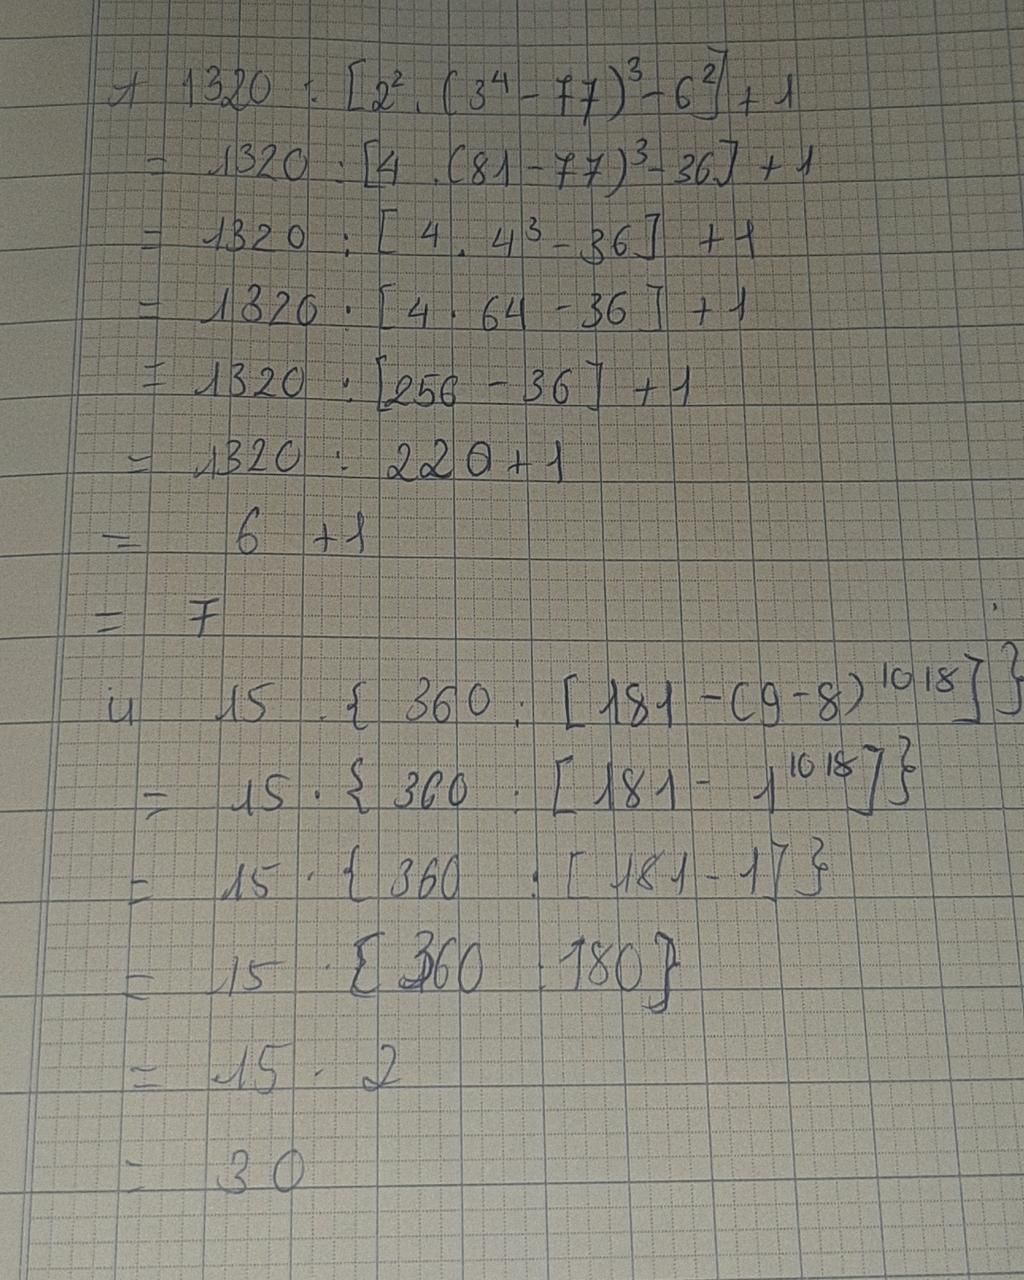 t 1320 : [2². (3⁴ - 77)³ - 6²] + 1
= 1320 : [4 . (81 - 77)³ - 36] + 1
= 1320 : [4 . 4³ - 36] + 1
= 1320 : [4 . 64 - 36] + 1
= 1320 : [256 - 36] + 1
= 1320 : 220 + 1
= 6 + 1
= 7
u 15 . { 360 : [181 - (9 - 8)¹⁰¹⁸]}
= 15 . { 360 : [181 - 1¹⁰¹⁸]}
= 15 . { 360 : [181 - 1]}
= 15 . { 360 : 180}
= 15 . 2
= 30